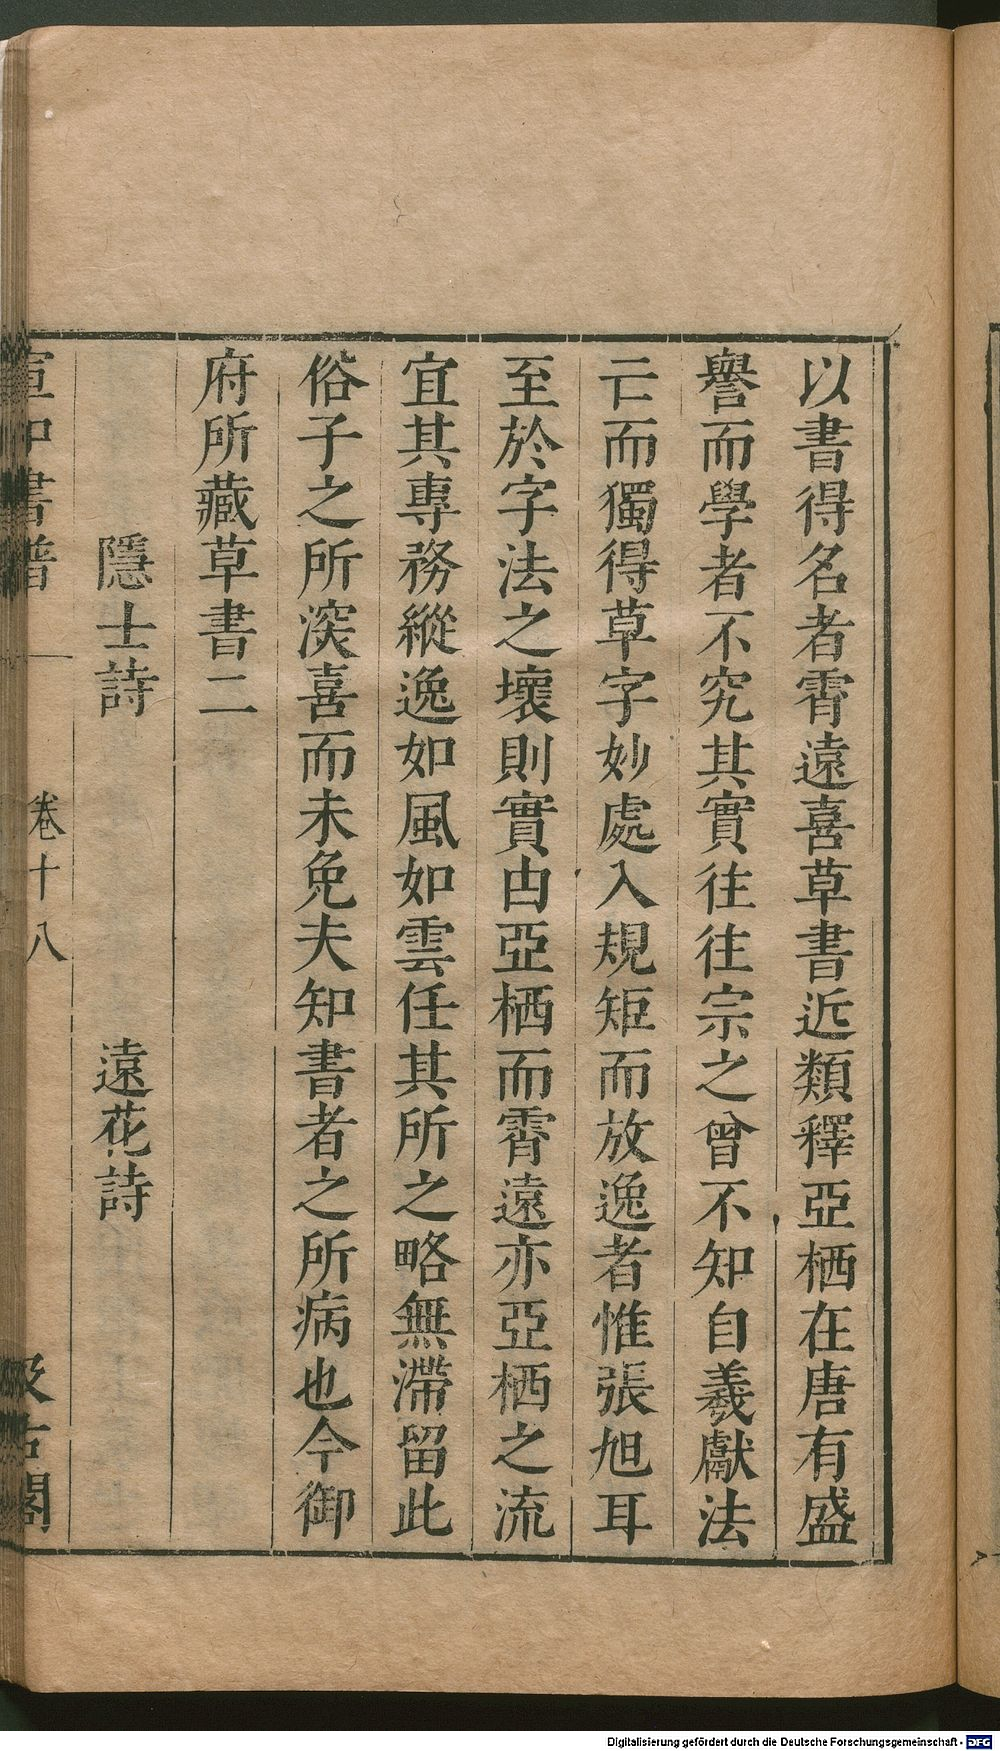 以書得名者霄遠喜草書近類釋亞栖在唐有盛
譽而學者不究其實往往宗之曾不知自羲獻法
亡而獨得草字妙處入規矩而放逸者惟張旭耳
至於字法之壞則實由亞栖而霄遠亦亞栖之流
宜其專務縱逸如風如雲任其所之略無滯留此
俗子之所深喜而未免夫知書者之所病也今御
府所藏草書二
隱士詩　遠花詩
宣和書譜　卷十八　汲古閣
Digitalisierung gefördert durch die Deutsche Forschungsgemeinschaft - DFG